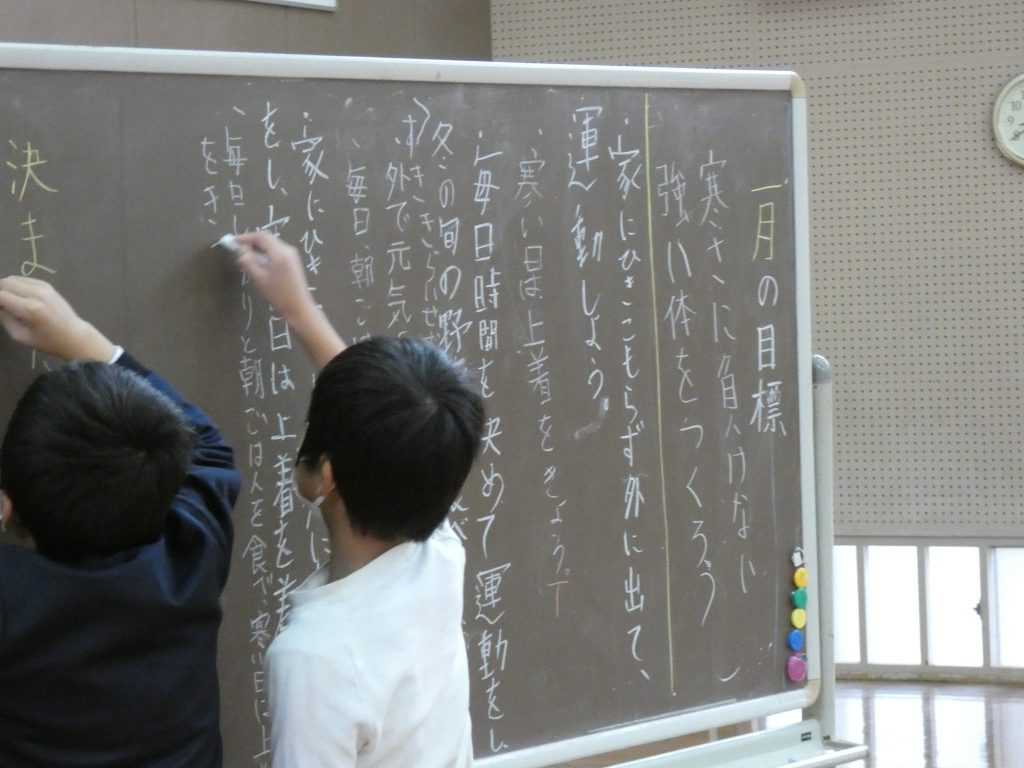 一月の目標
寒さに負けない
強い体をつくろう
家にひきこもらず外に出て、
運動しよう。
寒い日は上着をきよう。
毎日時間を決めて運動をし
冬の旬の野
外で元気
毎日、朝ご
家にひき
をし、 日は上着を着
毎日し りと朝ごはんを食べ寒い日に上
をき
決ま
10
9
8